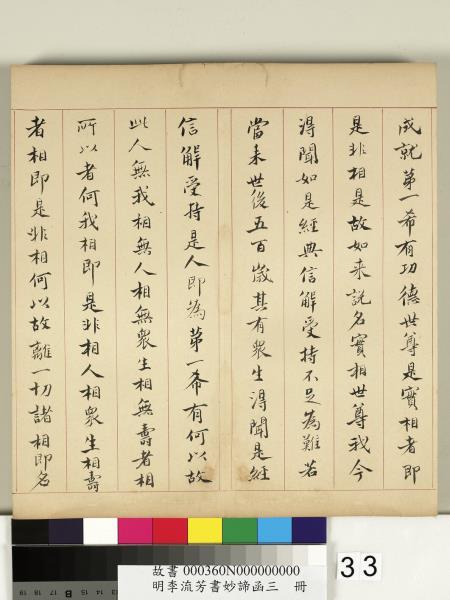 成就第一希有功德世尊是實相者即
是非相是故如来說名實相世尊我今
得聞如是經典信解受持不足為難若
當来世後五百歲其有衆生得聞是經
信解受持是人即為第一希有何以故
此人無我相無人相無衆生相無壽者相
所以者何我相即是非相人相衆生相壽
者相即是非相何以故離一切諸相即名
33
故書 000360N000000000
明李流芳書妙諦函三 冊